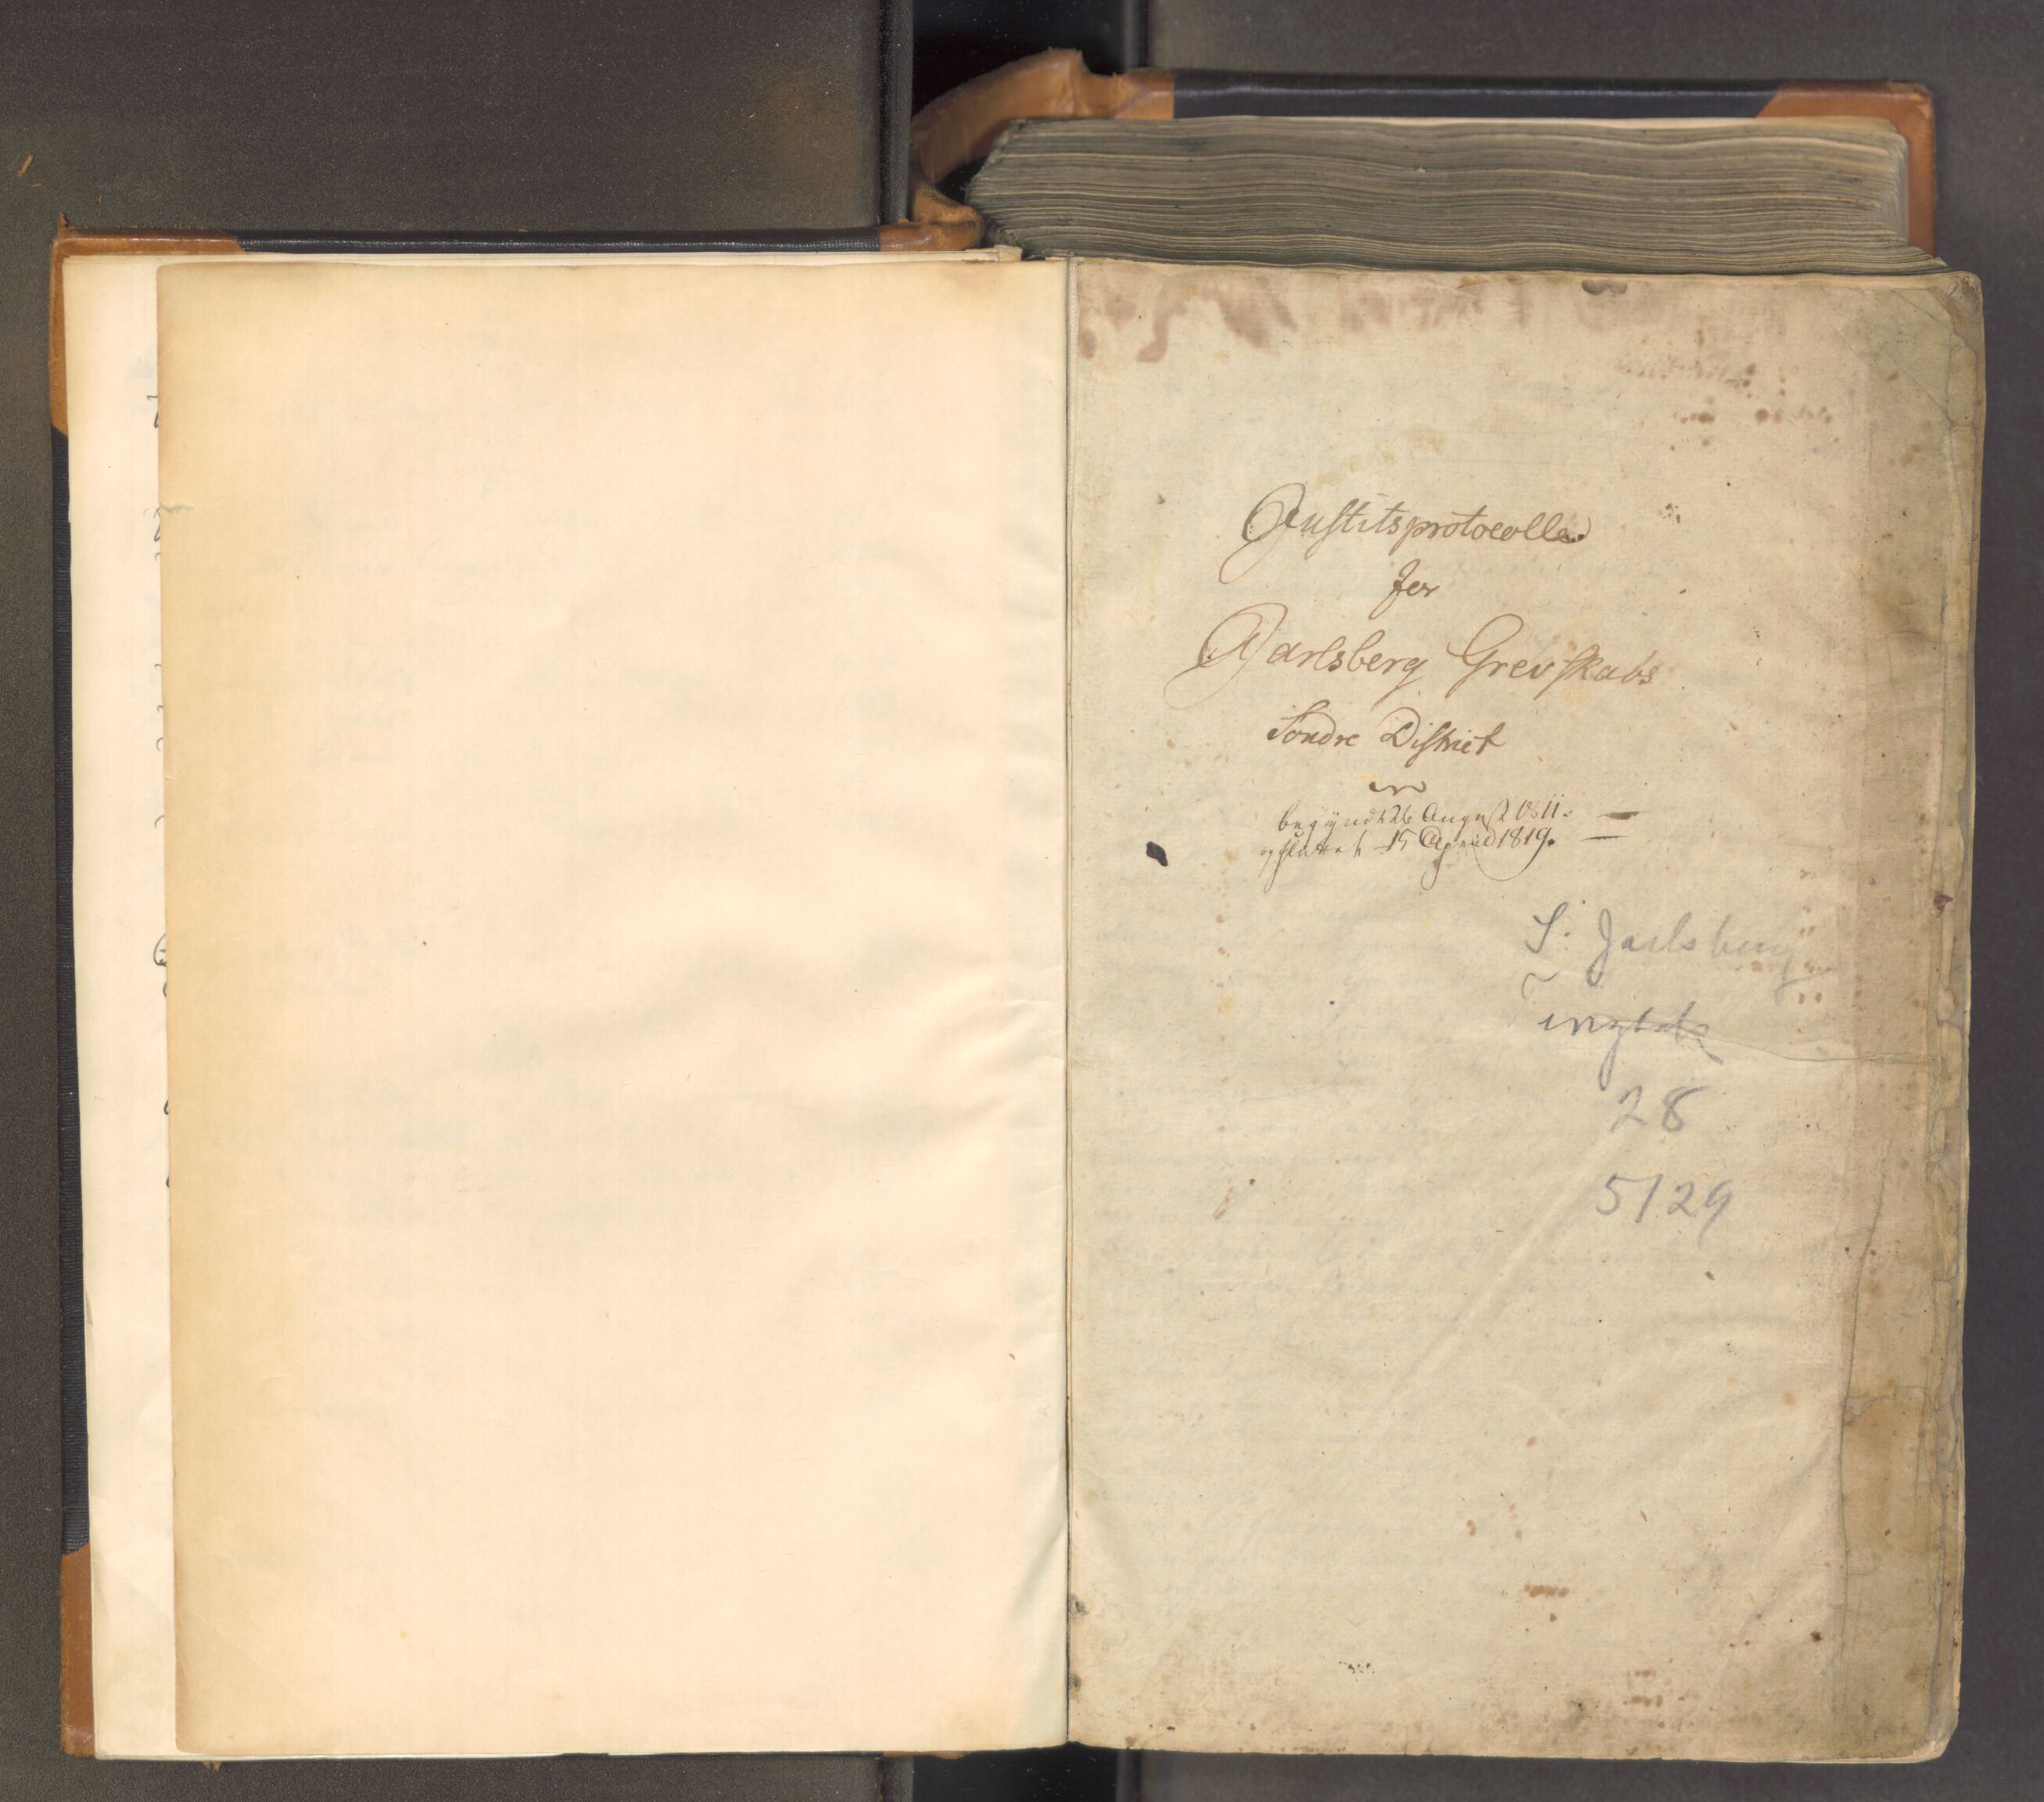 Justitsprotocoll
for
Jarlsberg Grevskabs
Søndre District
begyndt 26 August 1811.
og sluttet 15 April 1819.
S: Jarlsberg
Tingbok
28
5129